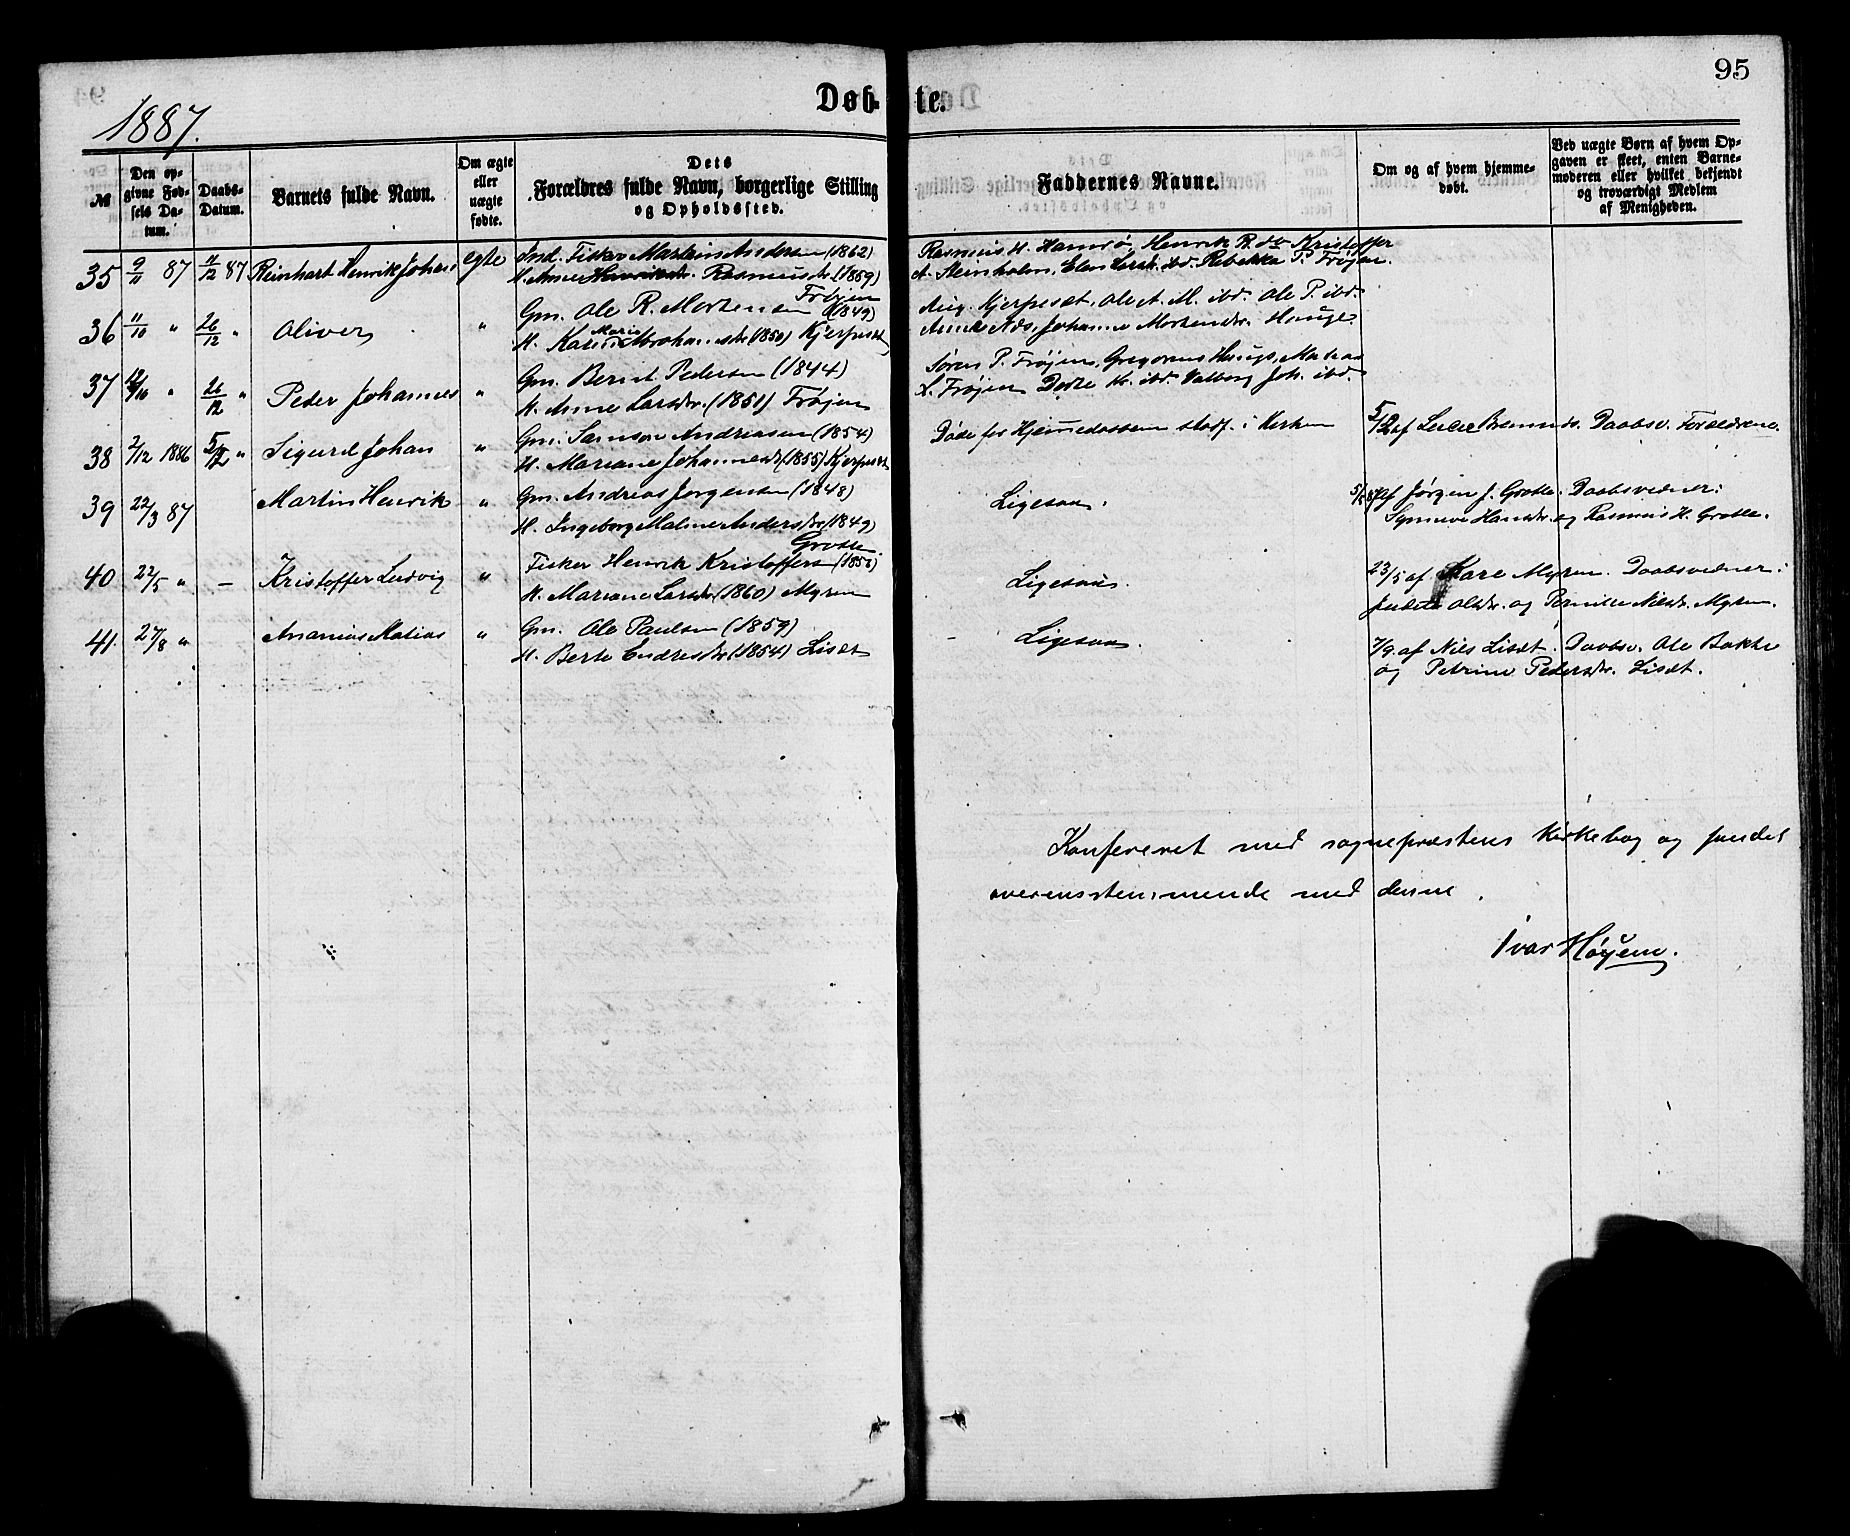 95
Døbte.
1887.
№
Den opgivne Fødsels Datum.
Daabs-Datum.
Barnets fulde Navn.
Om ægte eller uægte fødte.
Dets Forældres fulde Navn, borgerlige Stilling og Opholdssted.
Faddernes Navne.
Om og af hvem hjemmedøbt.
Ved uægte Børn af hvem Opgaven er skeet, enten Barnemoderen eller hvilket bekjendt og troværdigt Medlem af Menigheden.
35 9/11 87 11/12 87 Reinhart Henrik Johan egte Ind. Fisker Martin Andersen (1862)
H. Anne Rasmusdtr (1859)
Frøjen
Rasmus H. Hamrø, Henrik R. do Kristoffer
A. Stenholm, Elen Larsd. ibd. Rebekka P. Frøjen.
36 11/10 " 26/12 " Oliver " Gm. Ole R. Mortensen (1849)
H. Kari Marie Abrahamsdtr (1850) Kjerpeset
Aug. Kjerpeset, Ole A. M. ibd. Ole P. ibd.
Anne Nds. Johanne Mortensdtr. Hauge.
37 12/10 " 26/12 " Peder Johannes " Gm. Bernt Pedersen (1844)
H. Anne Larsdtr. (1851) Frøjen
Søren P. Frøjen, Gregorius Hauge, Matias
L. Frøjen Dorte Kr. ibd. Valborg Joh. ibd.
38 2/12 1886 5/12 " Sigurd Johan " Gm. Samson Andreasen (1854)
H. Mariane Johannesdtr (1855) Kjerpeset
Døde før Hjemmedaaben stadf. i Kirken
5/12 af Daabsv. Forældrene.
39 22/3 87 Martin Henrik " Gm. Andreas Jørgensen (1848)
H. Ingeborg Maline Andersdtr (1849)
Grotle
Ligesaa.
af Jørgen J. Grotle. Daabsvidner:
Synneve Hansdtr. og Rasmus H. Grotle.
40 22/5 " – Kristoffer Ludvig " Fisker Henrik Kristoffersen (1850)
H. Mariane Larsdtr (1860) Myren
Ligesaa.
23/5 af Kare Myren. Daabsvidner:
Olsdtr. og Pernille Nilsdtr. Myren.
41. 27/8 " Ananias Matias " Gm. Ole Paulsen (1859)
H. Berte Endresdtr (1854) Liset
Ligesaa.
7/9 af Nils Liset. Daabsv. Ole Bakke
og Petrine Pedersdtr. Liset.
Konfereret med sognepræstens Kirkebog og fundet
overensstemmende med denne.
Ivar Høyem.